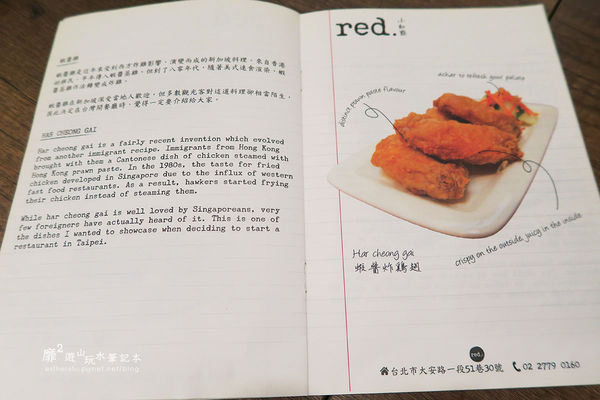 蝦醬雞
蝦醬雞是近年來受到西方炸雞影響，演變而成的新加坡料理。來自香港
的移民，早年傳入蝦醬蒸雞，但到了八零年代，隨著美式速食渲染，蝦
醬蒸雞作法轉變成炸雞。
蝦醬雞在新加坡深受當地人歡迎，但多數觀光客對這道料理卻相當陌生，
因此決定在台灣開餐廳時，覺得一定要介紹給大家。
HAR CHEONG GAI
Har cheong gai is a fairly recent invention which evolved
from another immigrant recipe. Immigrants from Hong Kong
brought with them a Cantonese dish of chicken steamed with
Hong Kong prawn paste. In the 1980s, the taste for fried
chicken developed in Singapore due to the influx of western
fast food restaurants. As a result, hawkers started frying
their chicken instead of steaming them.
While har cheong gai is well loved by Singaporeans, very
few foreigners have actually heard of it. This is one of
the dishes I wanted to showcase when deciding to start a
restaurant in Taipei.
red.
小紅點
achar to refresh your palate
distinct prawn paste flavour
crispy on the outside, juicy in the inside
Har cheong gai
蝦醬炸雞翅
red.
台北市大安路一段51巷30號 02 2779 0160
靡2遊山玩水筆記本
estherliu.pixnet.net/blog